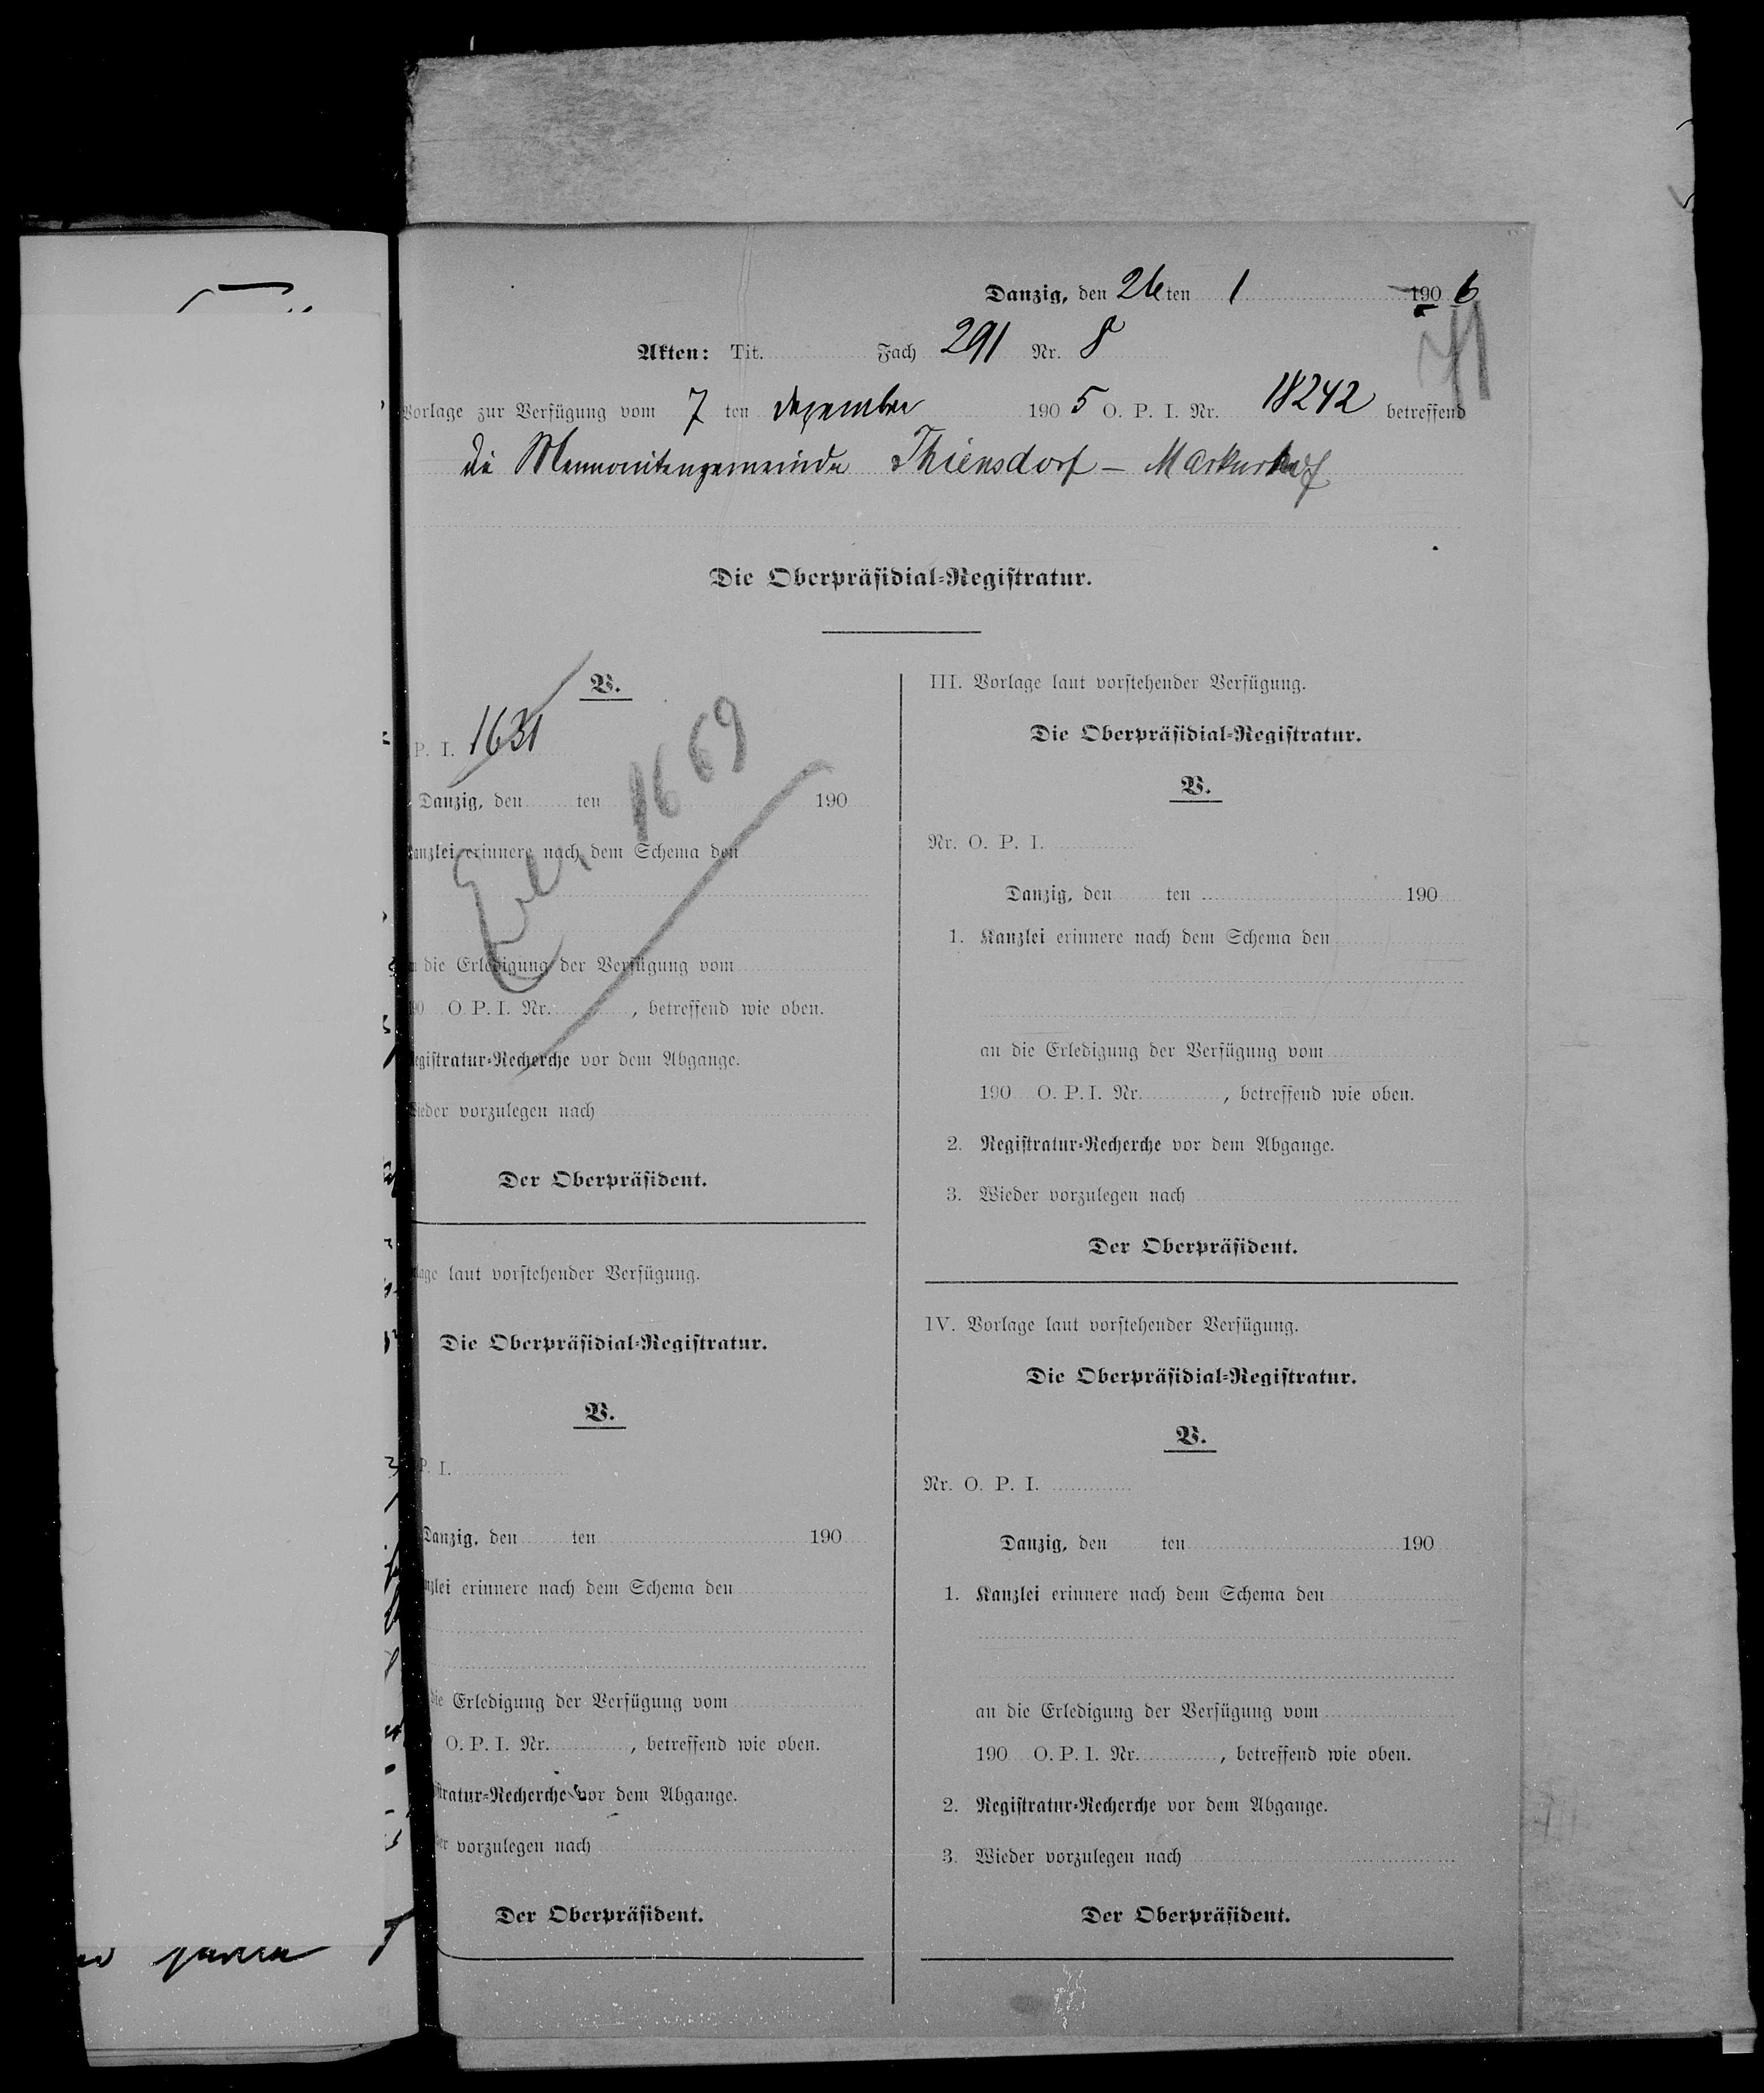 Danzig, den 26ten 1 1906
71
Akten: Tit. Fach 291 Nr. 8
Vorlage zur Verfügung vom 7 ten Dezember 1905 O. P. I. Nr. 18242 betreffend
die Mennonitengemeinde Thiensdorf - Markushof
Die Oberpräsidial-Registratur.
V.
P. I. 1631
1669
Danzig, den ten 190
anzlei erinnere nach dem Schema den
die Erledigung der Verfügung vom
90 O. P. I. Nr. , betreffend wie oben.
egistratur-Recherche vor dem Abgange.
ieder vorzulegen nach
Der Oberpräsident.
lage laut vorstehender Verfügung.
Die Oberpräsidial-Registratur.
V.
P. I.
Danzig, den ten 190
nzlei erinnere nach dem Schema den
die Erledigung der Verfügung vom
O. P. I. Nr. , betreffend wie oben.
istratur-Recherche vor dem Abgange.
er vorzulegen nach
Der Oberpräsident.
III. Vorlage laut vorstehender Verfügung.
Die Oberpräsidial-Registratur.
V.
Nr. O. P. I.
Danzig, den ten 190
1. Kanzlei erinnere nach dem Schema den
an die Erledigung der Verfügung vom
190 O. P. I. Nr. , betreffend wie oben.
2. Registratur-Recherche vor dem Abgange.
3. Wieder vorzulegen nach
Der Oberpräsident.
IV. Vorlage laut vorstehender Verfügung.
Die Oberpräsidial-Registratur.
V.
Nr. O. P. I.
Danzig, den ten 190
1. Kanzlei erinnere nach dem Schema den
an die Erledigung der Verfügung vom
190 O. P. I. Nr. , betreffend wie oben.
2. Registratur-Recherche vor dem Abgange.
3. Wieder vorzulegen nach
Der Oberpräsident.